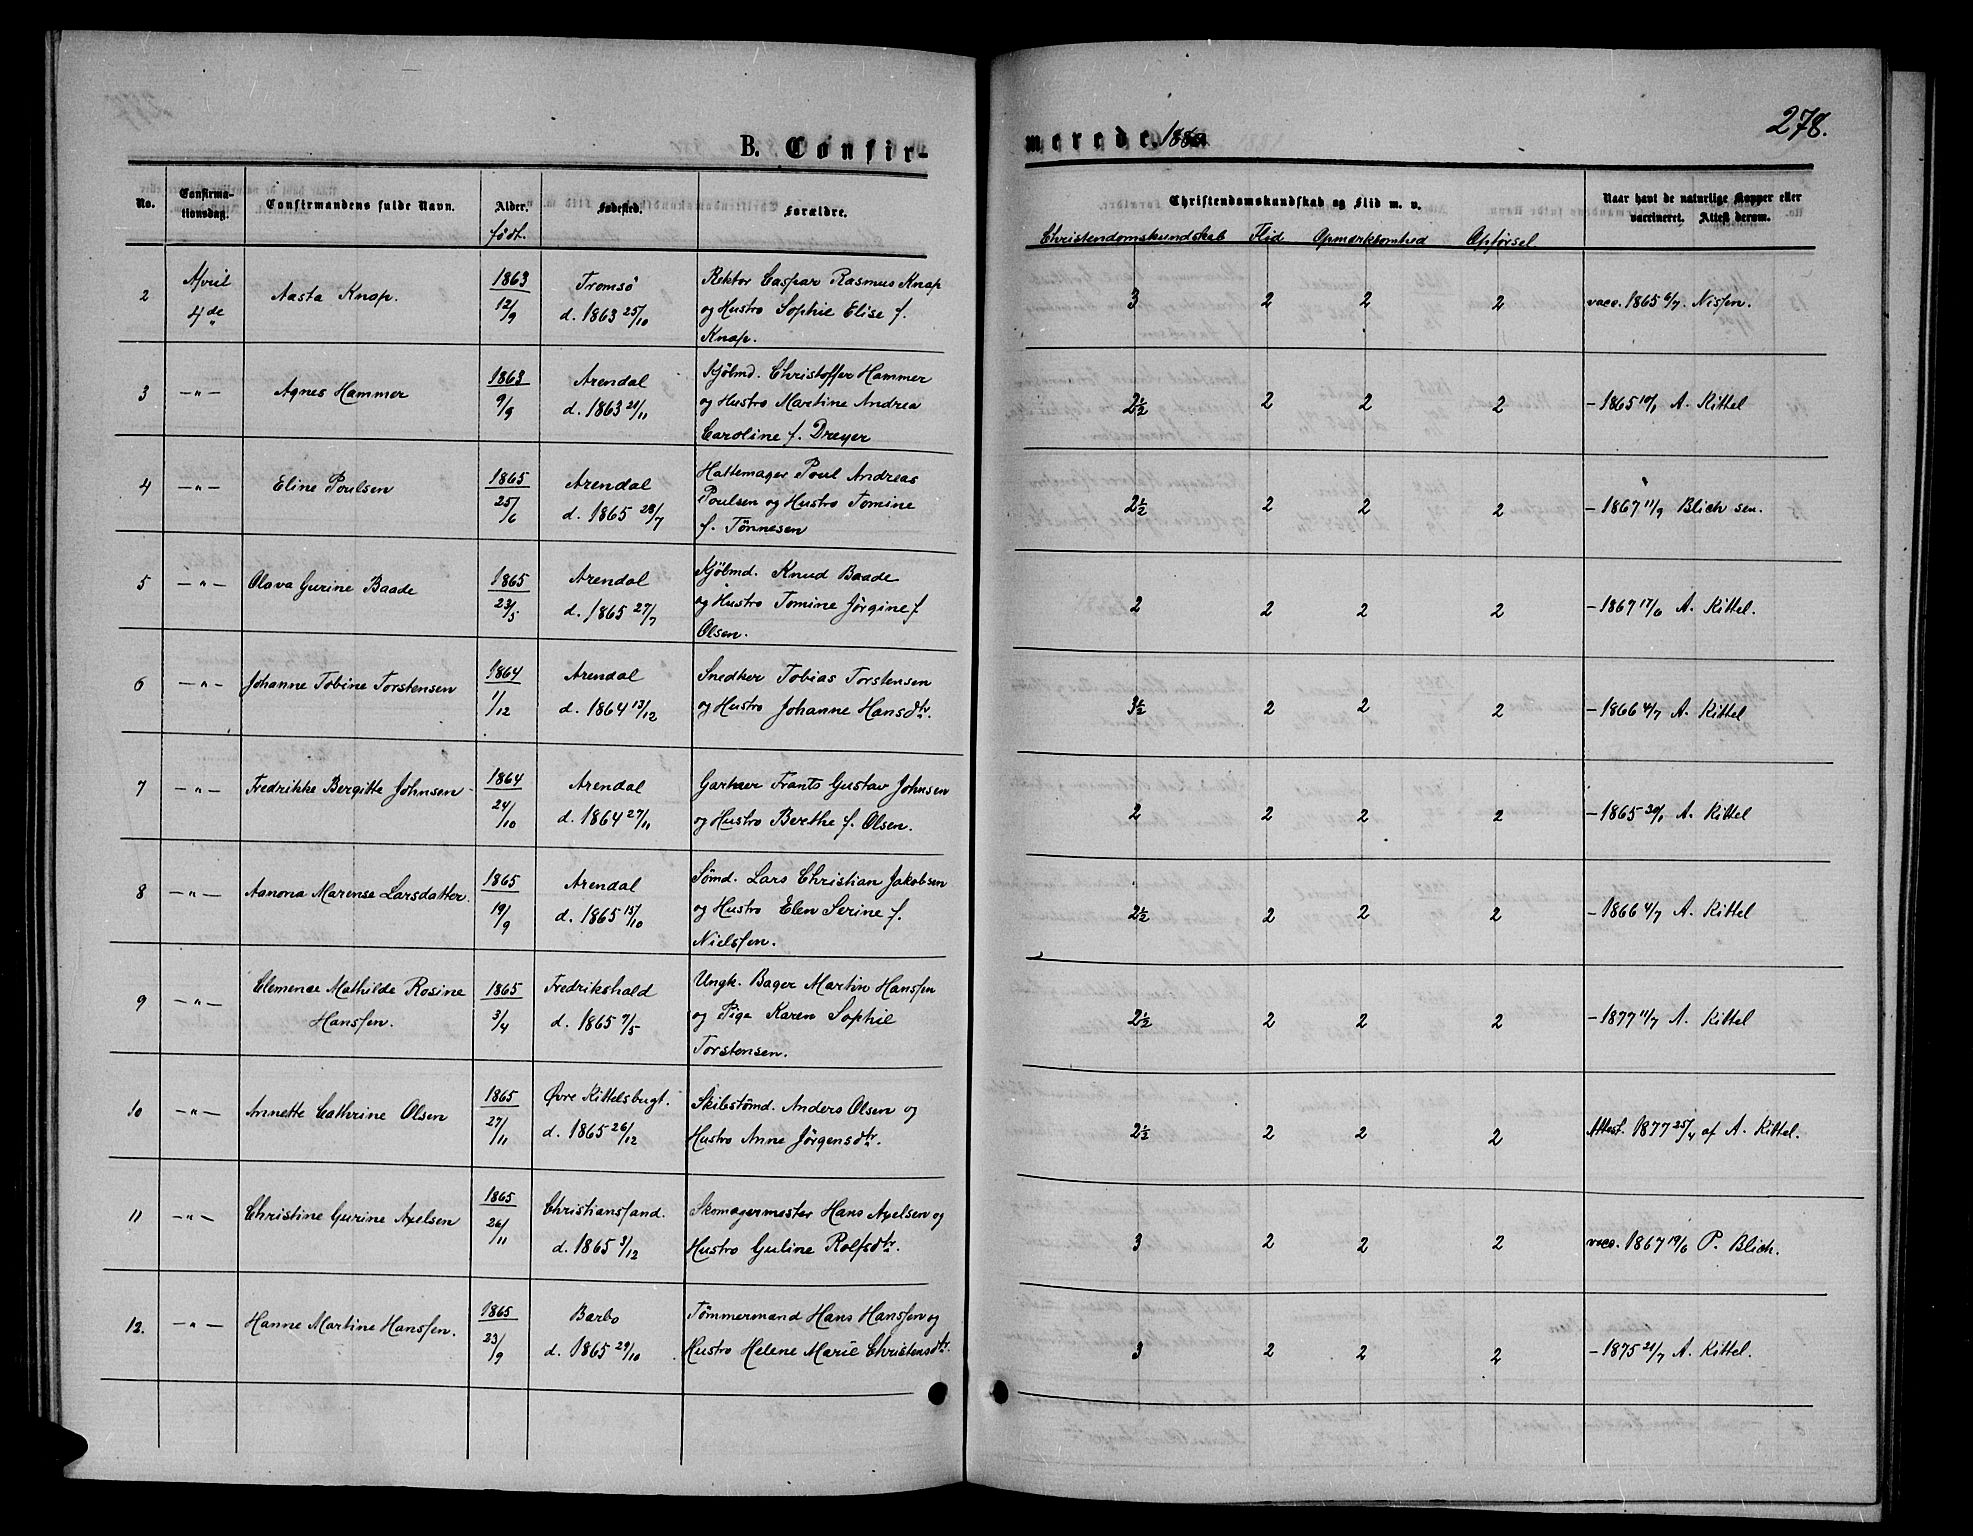 278.
B. Confir-
merede. 1880
No.
Confirma-
tionsdag.
Confirmandens fulde Navn.
Alder.
født.
Fødested.
Forældre.
Christendomskundskab og Flid m. v.
Christendomskundskab Flid Opmærksomhed Opførsel
Naar havt de naturlige Kopper eller
vaccineret. Attest derom.
2 April 4de Aasta Knap. 1863 12/9 Tromsö d. 1863 25/10
Rektor Caspar Rasmus Knap
og Hustro Sophie Elise f.
Knap.
3 2 2 2 vacc. 1865 6/7. Nissen.
3 —"— Agnes Hammer 1863 9/9 Arendal d. 1863 21/11
Kjölmd. Christoffer Hammer
og Hustro Martine Andrea
Caroline f. Dreyer
2½ 2 2 2 — 1865 10/1 A. Kittel
4 —"— Eline Poulsen 1865 25/6 Arendal d. 1865 28/7
Hattemager Poul Andreas
Poulsen og Hustro Tomine
f. Tönnesen
2½ 2 2 2 — 1867 11/9 Blich sen.
5 —"— Olava Gurine Baade 1865 23/5 Arendal d. 1865 27/7
Kjölmd. Knud Baade
og Hustro Tomine Jörgine f.
Olsen.
2 2 2 2 — 1867 17/6 A. Kittel.
6 —"— Johanne Tobine Torstensen 1864 1/12 Arendal d. 1864 13/12
Snedker Tobias Torstensen
og Hustro Johanne Hansdtr.
3½ 2 2 2 — 1866 4/7 A. Kittel
7 —"— Fredrikke Bergitte Johnsen 1864 24/10 Arendal d. 1864 27/11
Garver Frants Gustav Johnsen
og Hustro Berthe f. Olsen.
2 2 2 2 — 1865 30/1 A. Kittel
8 —"— Aanona Marense Larsdatter. 1865 19/9 Arendal d. 1865 15/10
Sömd. Lars Christian Jakobsen
og Hustro Elen Serine f.
Nielsen.
2½ 2 2 2 — 1866 4/7 A. Kittel
9 —"— Clemence Mathilde Rosine
Hansen. 1865 3/4 Fredrikshald d. 1865 7/5
Ungk. Bager Martin Hansen
og Pige Karen Sophie
Torstensen.
2½ 2 2 2 — 1877 11/7 A. Kittel
10 —"— Annette Cathrine Olsen 1865 27/11 Øvre Kittelsbugt. d. 1865 26/12
Skibstömd. Anders Olsen og
Hustro Anne Jörgensdtr.
2½ 2 2 2 Attest. 1877 25/4 af A. Kittel.
11 —"— Christine Gurine Axelsen 1865 26/11 Christiansand. d. 1865 3/12
Skomagermester Hans Axelsen og
Hustro Guline Rolfsdtr.
3 2 2 2 vacc. 1867 19/6 P. Blich.
12. —"— Hanne Martine Hansen. 1865 23/9 Barbo d. 1865 29/10
Tömmermand Hans Hansen og
Hustro Helene Marie Christensdtr.
3 2 2 2 — 1875 21/7 A. Kittel.